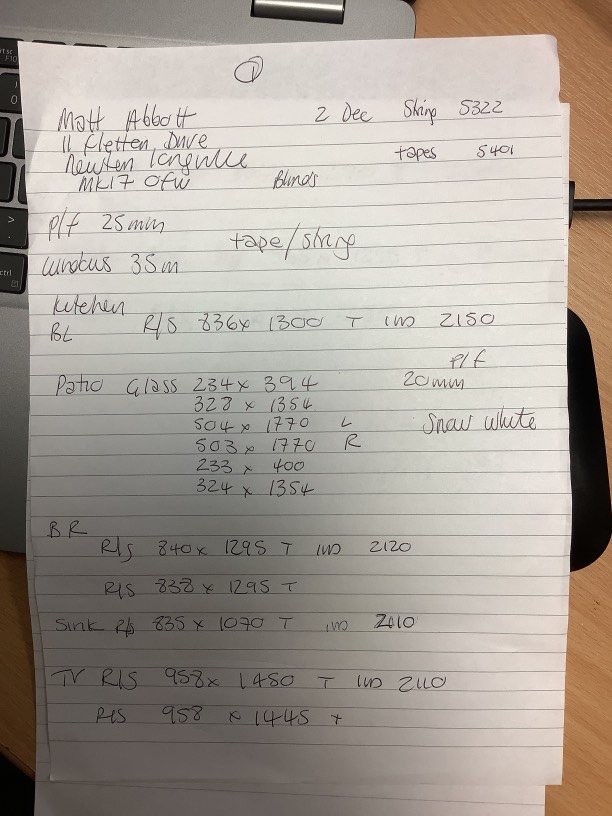 ①
Matt Abbott 2 Dec String 5322
11 Fletten Drive tapes 5401
Newton Longville
MK17 0FW Blinds
P/f 25mm
tape/string
Windows 35m
Kitchen
BL R/S 836 x 1300 T IWD 2150
P/f
Patio Glass 234 x 394 20mm
328 x 1354
504 x 1770 L Snow White
503 x 1770 R
233 x 400
324 x 1354
BR
R/S 840 x 1295 T IWD 2120
R/S 838 x 1295 T
Sink R/S 835 x 1070 T IWD 2010
TV R/S 958 x 1450 T IWD 2110
R/S 958 x 1445 T